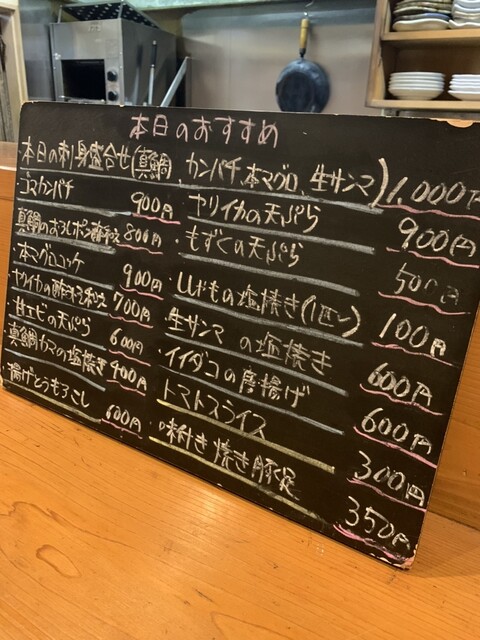 本日のおすすめ
・本日の刺身盛合せ(真鯛、カンパチ、本マグロ、生サンマ) 1,000円
ゴマカンパチ 900円
真鯛のおろしポン酢和え 800円
・本マグロユッケ 900円
ヤリイカの酢みそ和え 700円
・甘エビの天ぷら 600円
真鯛カマの塩焼き 900円
・揚げとうもろこし 600円
ヤリイカの天ぷら 900円
・もずくの天ぷら 500円
・ししゃもの塩焼き(1匹〜) 100円
生サンマの塩焼き 600円
・イイダコの唐揚げ 600円
トマトスライス 300円
・味付き焼き豚足 350円